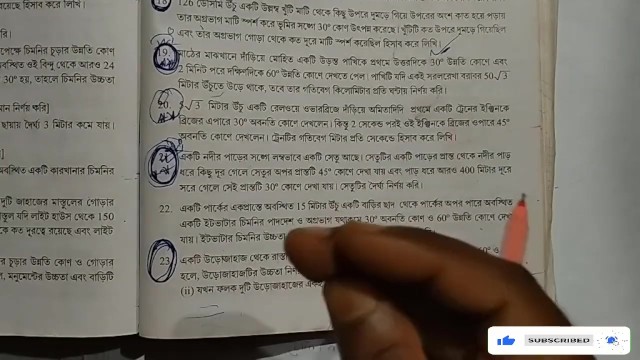 18. 126 ডেসিমি উঁচু একটি উল্লম্ব খুঁটি মাটি থেকে কিছু উপরে দুমড়ে গিয়ে উপরের অংশ কাত হয়ে পড়ায়
তার অগ্রভাগ মাটি স্পর্শ করে ভূমির সঙ্গে 30° কোণ উৎপন্ন করেছে। খুঁটিটি কত উপরে দুমড়ে গিয়েছিল
এবং তার অগ্রভাগ গোড়া থেকে কত দূরে মাটি স্পর্শ করেছিল হিসাব করে লিখি।
19. মাঠের মাঝখানে দাঁড়িয়ে মোহিত একটি উড়ন্ত পাখিকে প্রথমে উত্তরদিকে 30° উন্নতি কোণে এবং
2 মিনিট পরে দক্ষিণদিকে 60° উন্নতি কোণে দেখতে পেল। পাখিটি যদি একই সরলরেখা বরাবর 50√3
মিটার উঁচুতে উড়ে থাকে, তবে তার গতিবেগ কিলোমিটার প্রতি ঘণ্টায় নির্ণয় করি।
20. 5√3 মিটার উঁচু একটি রেলওয়ে ওভারব্রিজে দাঁড়িয়ে অমিতাদিদি প্রথমে একটি ট্রেনের ইঞ্জিনকে
ব্রিজের এপারে 30° অবনতি কোণে দেখলেন। কিন্তু 2 সেকেন্ড পরই ওই ইঞ্জিনকে ব্রিজের ওপারে 45°
অবনতি কোণে দেখলেন। ট্রেনটির গতিবেগ মিটার প্রতি সেকেন্ডে হিসাব করে লিখি।
একটি নদীর পাড়ের সঙ্গে লম্বভাবে একটি সেতু আছে। সেতুটির একটি পাড়ের প্রান্ত থেকে নদীর পাড়
ধরে কিছু দূর গেলে সেতুর অপর প্রান্তটি 45° কোণে দেখা যায় এবং পাড় ধরে আরও 400 মিটার দূরে
সরে গেলে সেই প্রান্তটি 30° কোণে দেখা যায়। সেতুটির দৈর্ঘ্য নির্ণয় করি।
22. একটি পার্কের একপ্রান্তে অবস্থিত 15 মিটার উঁচু একটি বাড়ির ছাদ থেকে পার্কের অপর পারে অবস্থিত
একটি ইটভাটার চিমনির পাদদেশ ও অগ্রভাগ যথাক্রমে 30° অবনতি কোণ ও 60° উন্নতি কোণে দেখা
যায়। ইটভাটার চিমনির উচ্চতা
23. একটি উড়োজাহাজ থেকে রাস্তা
হলে, উড়োজাহাজটির উচ্চতা নির্ণ
(ii) যখন ফলক দুটি উড়োজাহাজের একই
হিসাব করে লিখি।
রি।
পেক্ষে চিমনির চূড়ার উন্নতি কোণ
বস্থিত ওই বিন্দু থেকে আরও 24
30° হয়, তাহলে চিমনির উচ্চতা
মান নির্ণয় করি]
ছায়ায় দৈর্ঘ্য 3 মিটার কমে যায়।
অবস্থিত একটি কারখানার চিমনির
দুটি জাহাজের মাস্তুলের গোড়ার
স্তুল যদি লাইট হাউস থেকে 150
কে কত দূরত্বে রয়েছে এবং লাইট
র চূড়ার উন্নতি কোণ ও গোড়ার
, মনুমেন্টের উচ্চতা এবং বাড়িটি
SUBSCRIBED